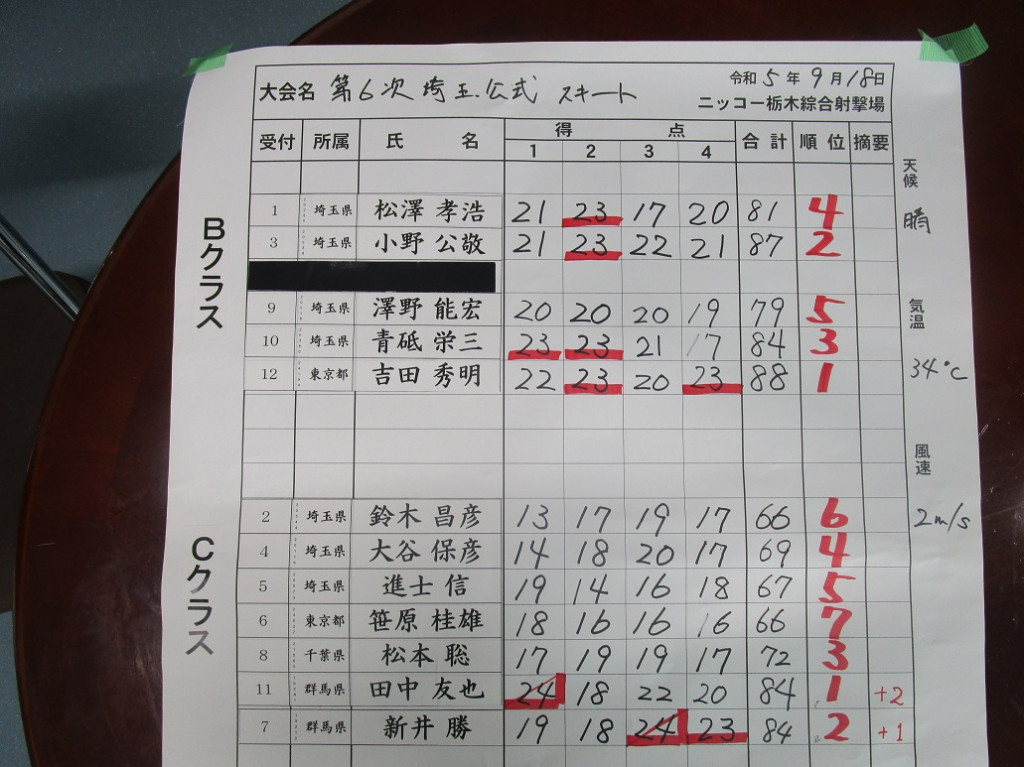 大会名 第6次埼玉公式 スキート 令和5年9月18日
ニッコー栃木綜合射撃場
受付 所属 氏名 得点 合計 順位 摘要
1 2 3 4
天候 晴
気温 34°C
風速 2m/s
Bクラス
1 埼玉県 松澤 孝浩 21 23 17 20 81 4
3 埼玉県 小野 公敬 21 23 22 21 87 2
9 埼玉県 澤野 能宏 20 20 20 19 79 5
10 埼玉県 青砥 栄三 23 23 21 17 84 3
12 東京都 吉田 秀明 22 23 20 23 88 1
Cクラス
2 埼玉県 鈴木 昌彦 13 17 19 17 66 6
4 埼玉県 大谷 保彦 14 18 20 17 69 4
5 埼玉県 進士 信 19 14 16 18 67 5
6 東京都 笹原 桂雄 18 16 16 16 66 7
8 千葉県 松本 聡 17 19 19 17 72 3
11 群馬県 田中 友也 24 18 22 20 84 1 +2
7 群馬県 新井 勝 19 18 24 23 84 2 +1